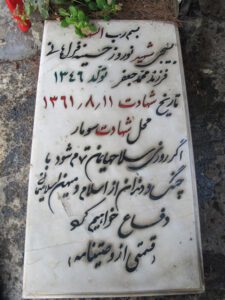 بسم رب الشهدا
بسیجی شهید نوروز حسینقراخانی
فرزند محمدجعفر تولد ۱۳۴۶
تاریخ شهادت ۱۳۶۱،۸،۱۱
محل شهادت سومار
اگر روزی سلاحهایمان تمام شود با
چنگ و دندان از اسلام و میهن اسلامی
دفاع خواهیم کرد
(قسمتی از وصیتنامه)